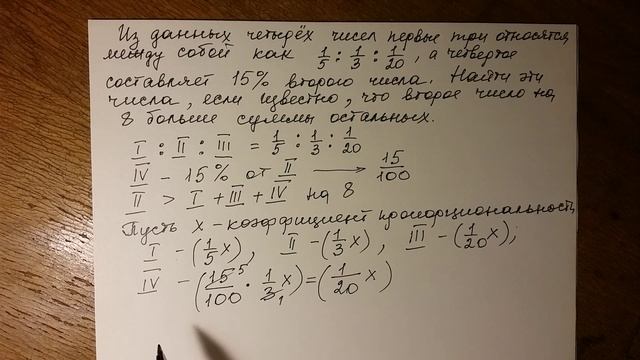 Из данных четырёх чисел первые три относятся
между собой как 1/5 : 1/3 : 1/20, а четвертое
составляет 15% второго числа. Найти эти
числа, если известно, что второе число на
8 больше суммы остальных.
I : II : III = 1/5 : 1/3 : 1/20
IV - 15% от II → 15/100
II > I + III + IV на 8
Пусть x - коэффициент пропорциональности,
I - (1/5 x), II - (1/3 x), III - (1/20 x);
IV - (15⁵/100 · 1/3₁ x) = (1/20 x)